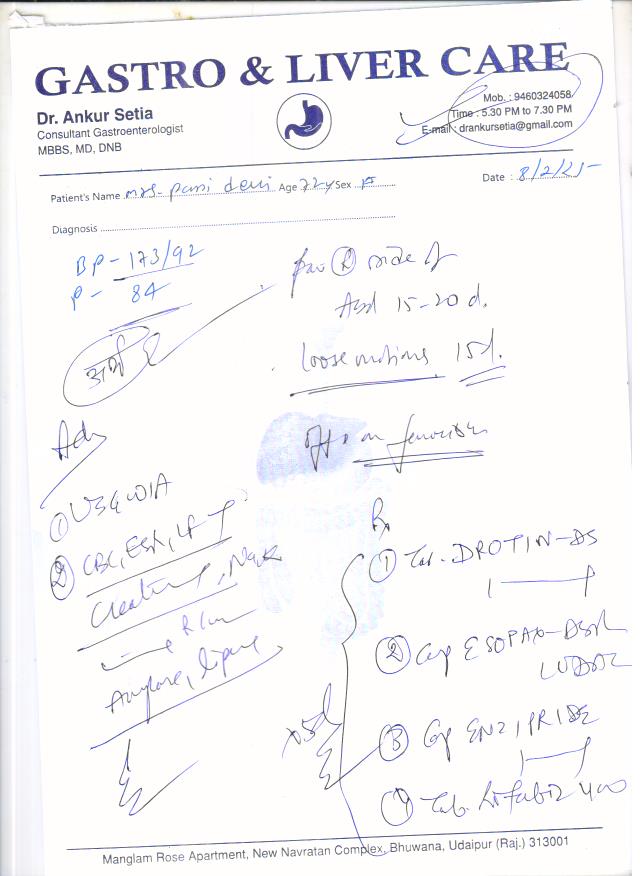 GASTRO & LIVER CARE
Dr. Ankur Setia
Consultant Gastroenterologist
MBBS, MD, DNB
Mob. : 9460324058
Time : 5.30 PM to 7.30 PM
E-mail : drankursetia@gmail.com
Patient's Name mrs. pani devi Age 72y Sex F
Date : 8/2/25
Diagnosis
BP - 173/92
P - 84
pain R side of
Abd 15-20 d.
loose motions 15d.
Adv
① USG W/A
② CBC, ESR, LFT
Creatinine, Na/K
Amylase, lipase
Rx
① Tab. DROTIN-DS
② Cap ESOPAX-DSR
③ Cap ENZIPRIDE
x5d
④ Tab. Rifabiz 400
Manglam Rose Apartment, New Navratan Complex, Bhuwana, Udaipur (Raj.) 313001